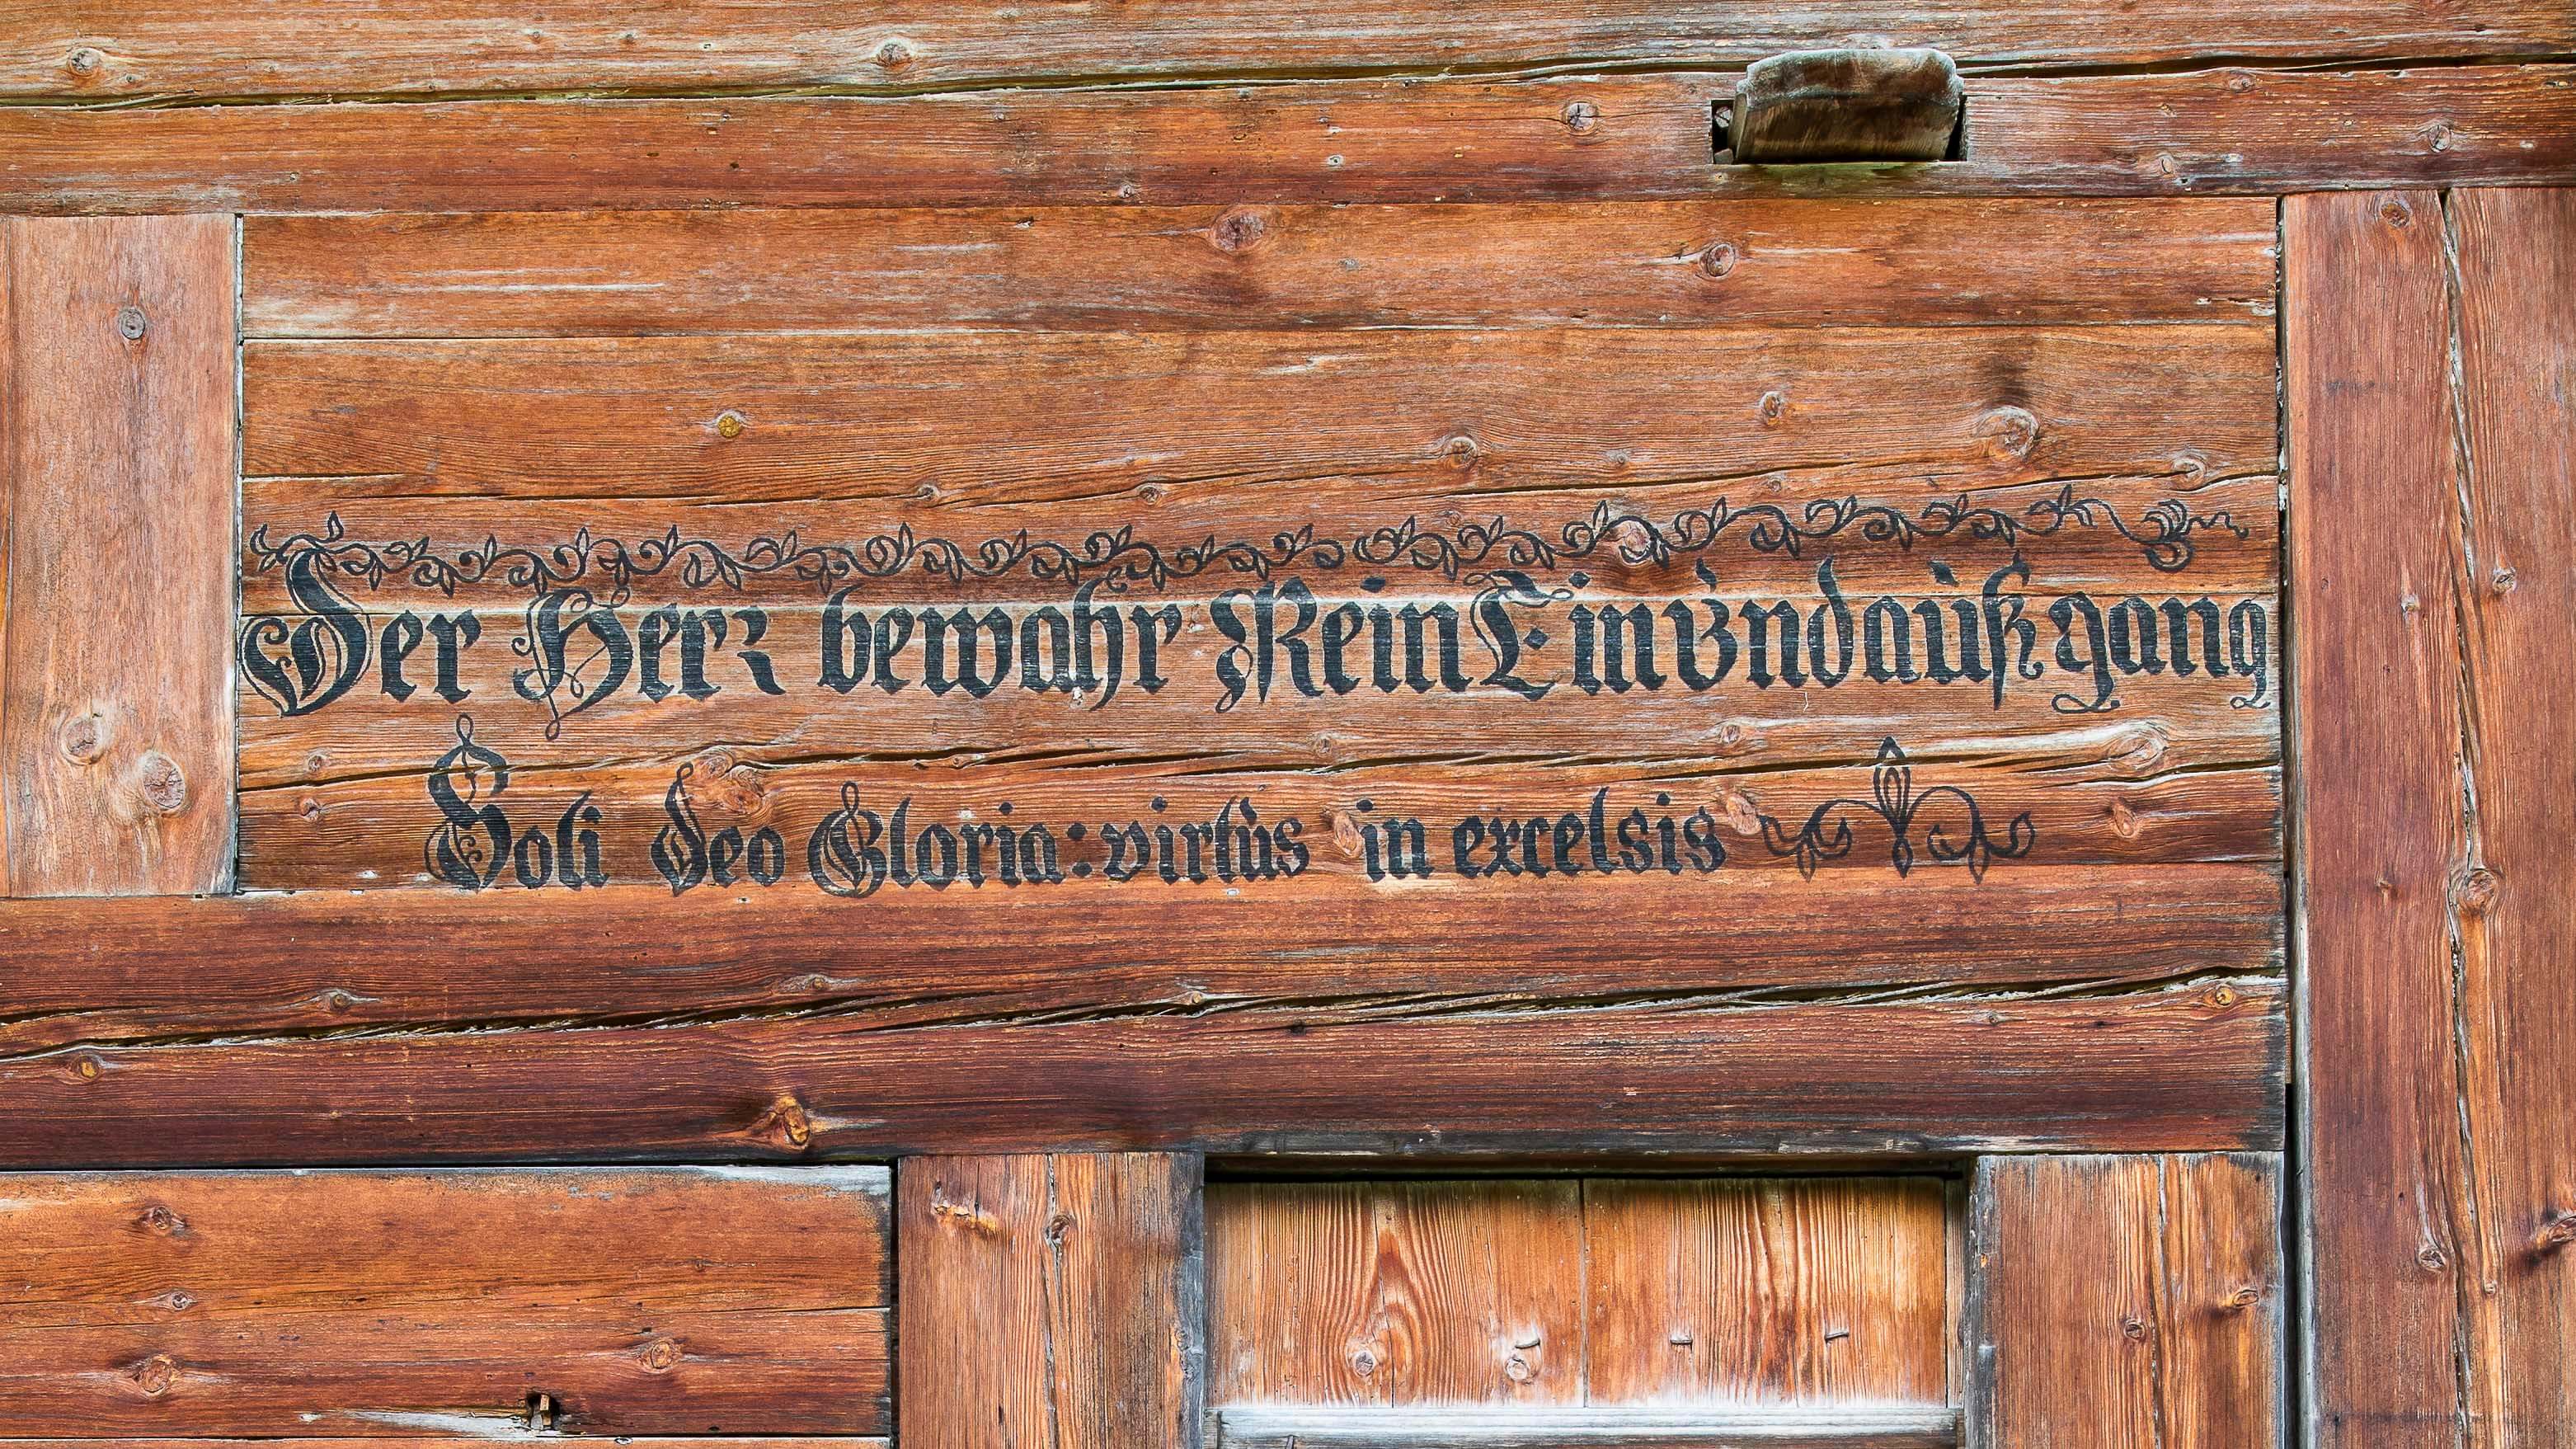 Der Herr bewahr Mein Ein ündaüß gang
Soli deo Gloria: virtüs in excelsis